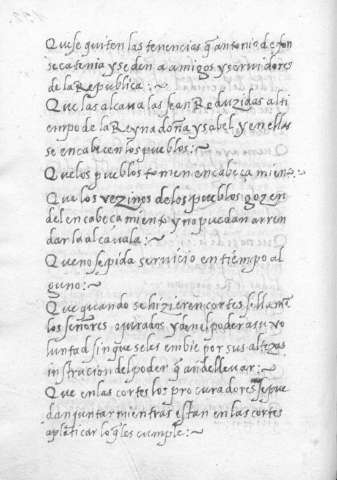 Que se quiten las tenencias q̃ antonio de fon
seca tenia y se den a amigos y servidores
de la Republica :~
Que las alcavalas sean Reduzidas al ti
empo de la Reyna doña ysabel y en ellas
se encabecen los pueblos :~
Que los pueblos tomen encabeçamien.to
Que los vezinos de los pueblos gozen
del encabeçamiento y no puedan arren
dar la alcavala :~
Que no se pida servicio en tiempo al
guno :~
Que quando se hizieren cortes si llamā
los señores oydores y den el poder a su vo
luntad sin que se les embie por sus altezas
instracion del poder q̃ an de llevar :~
Que en las cortes los procuradores se pue
dan juntar mientras estan en las cortes
a platicar lo q̃ les cumple :~